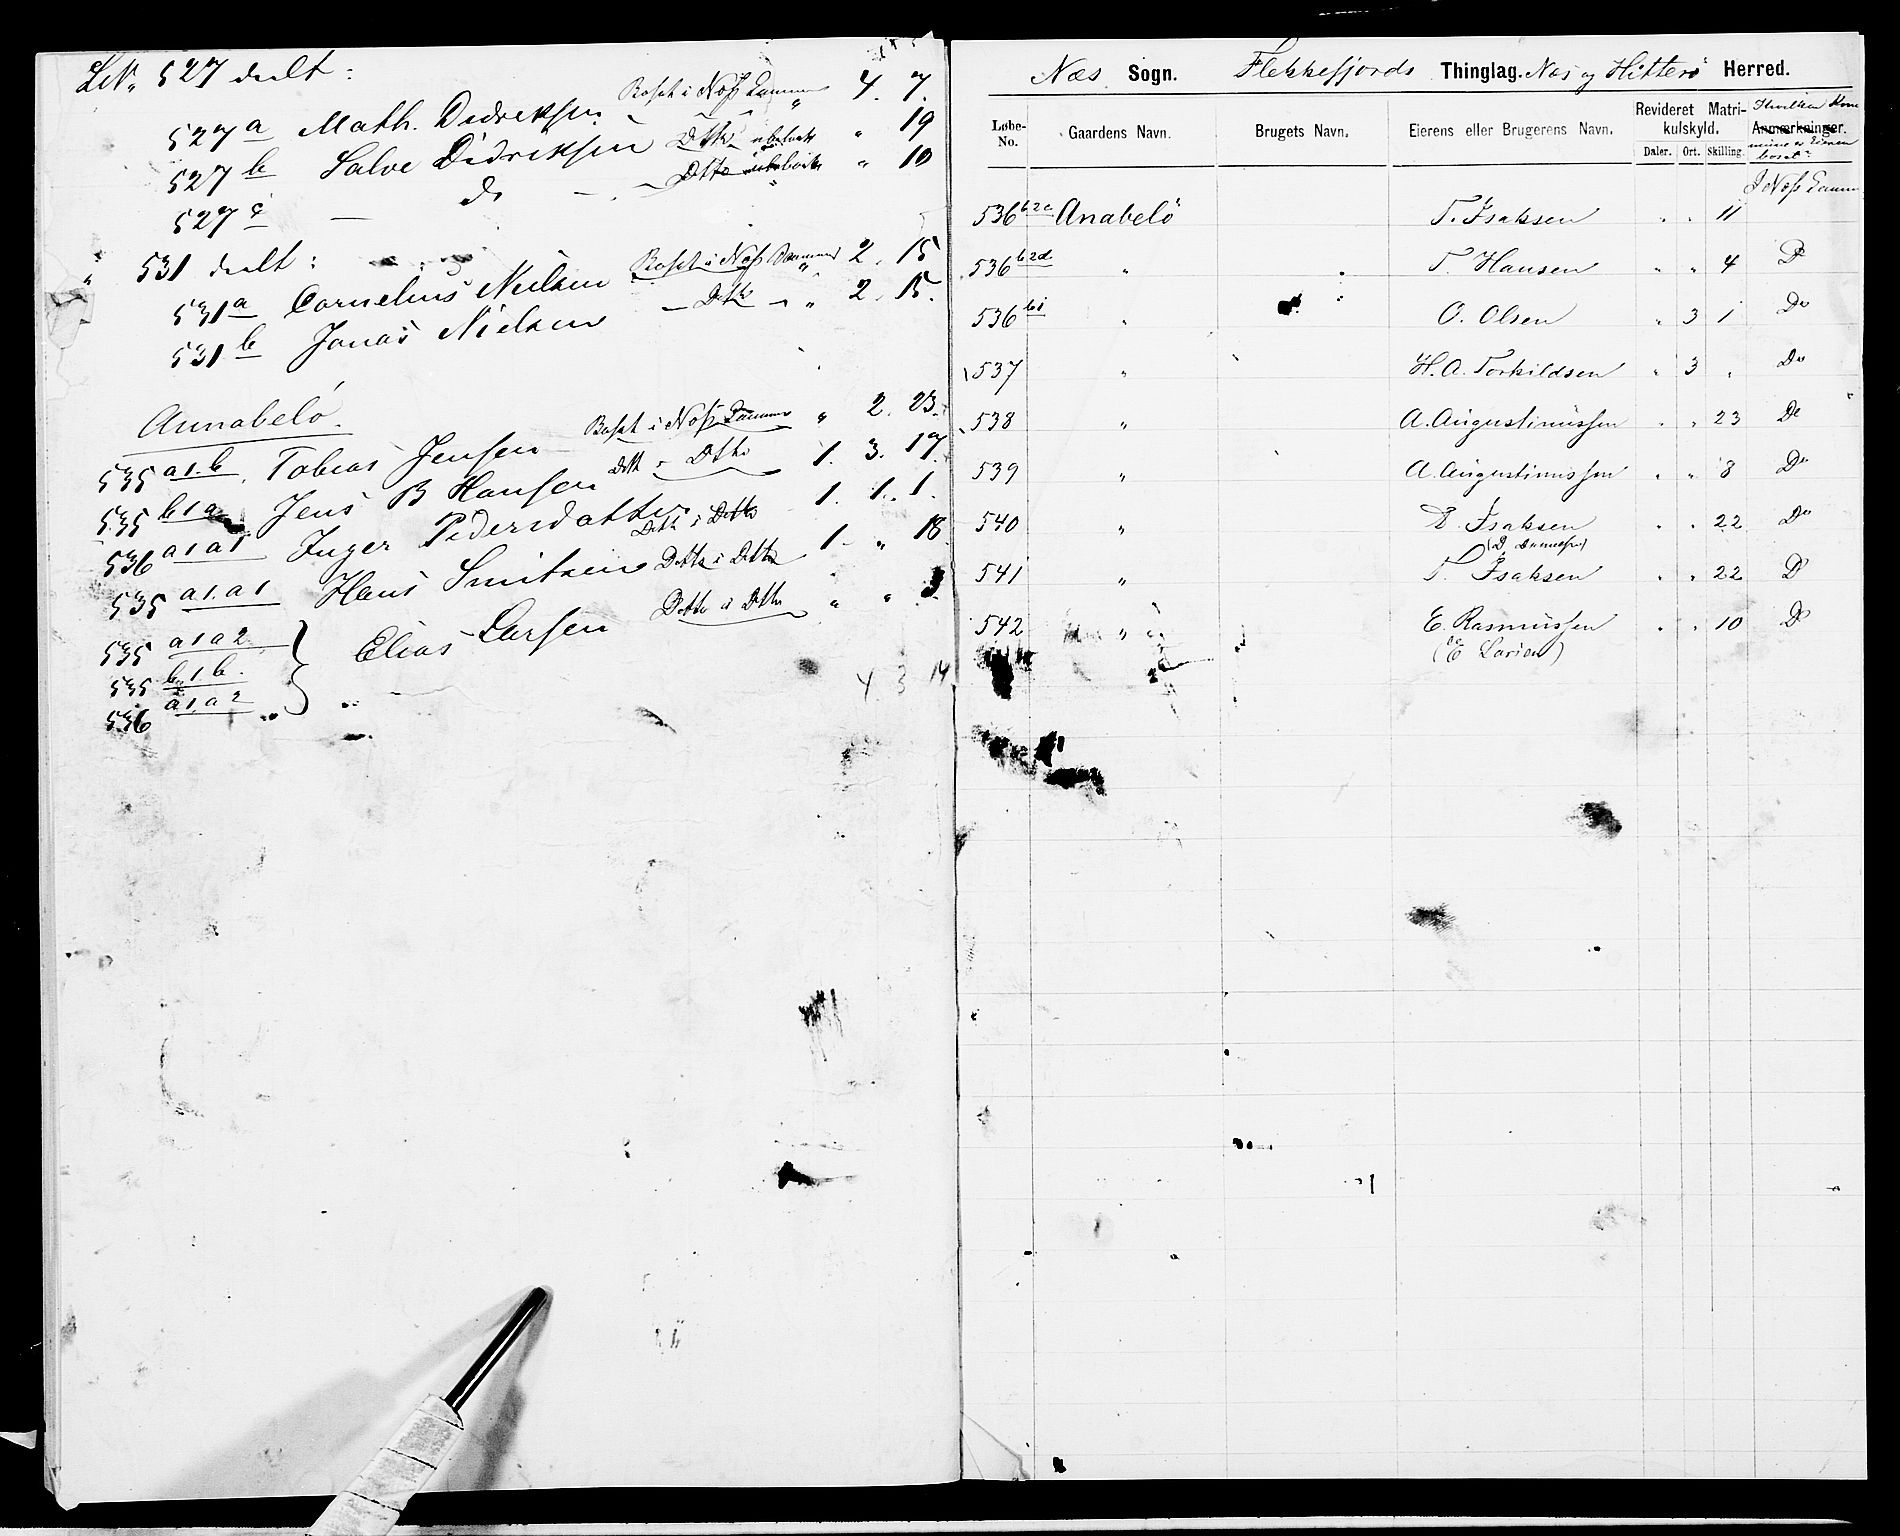 LN. 527 deelt:
527 a Math. Didriksen Bosat i Næs 4. 7.
527 b Salve Didriksen Ditto 19
527 c — do — Ditto 10
" 531 deelt:
531 a Cornelius Nielsen Bosat i Næs 2. 15
531 b Jonas Nielsen — Ditto — " 2. 15.
Annabelö.
535 a1.b. Tobias Jensen Bosat i Næs " 2. 23.
535 b1a Jens B Hansen Ditto 1. 3. 17.
536 a1a1 Inger Pedersdatter Ditto i Ditto 1. 1. 1.
535 a1.a1 Hans Smitsen Ditto i Ditto 1. " 18
535 a1a2
535 b.1b. Elias Larsen Ditto i Ditto " " 3
536 a1.a2
4 3 14
Næs Sogn. Flekkefjords Thinglag. Næs og Hitterö Herred.
Løbe-No. Gaardens Navn. Brugets Navn. Eierens eller Brugerens Navn. Revideret Matrikulskyld. Daler. Ort. Skilling. Anmærkninger. Hvilken Kommune er Eieren bosat?
I Næs
536 b2c Anabelö T. Isaksen " " 11
536 b2d " T. Hansen " " 4 Do
536 bi " O. Olsen " 3 1 Do
537 " H. A. Torkildsen " 3 " Do
538 " A. Augustinussen " " 23 Do
539 " A. Augustinussen " " 8 Do
540 " D. Isaksen " " 22 Do
541 " T. Isaksen " " 22 Do
542 " E. Rasmussen " " 10 Do
(E Larsen)